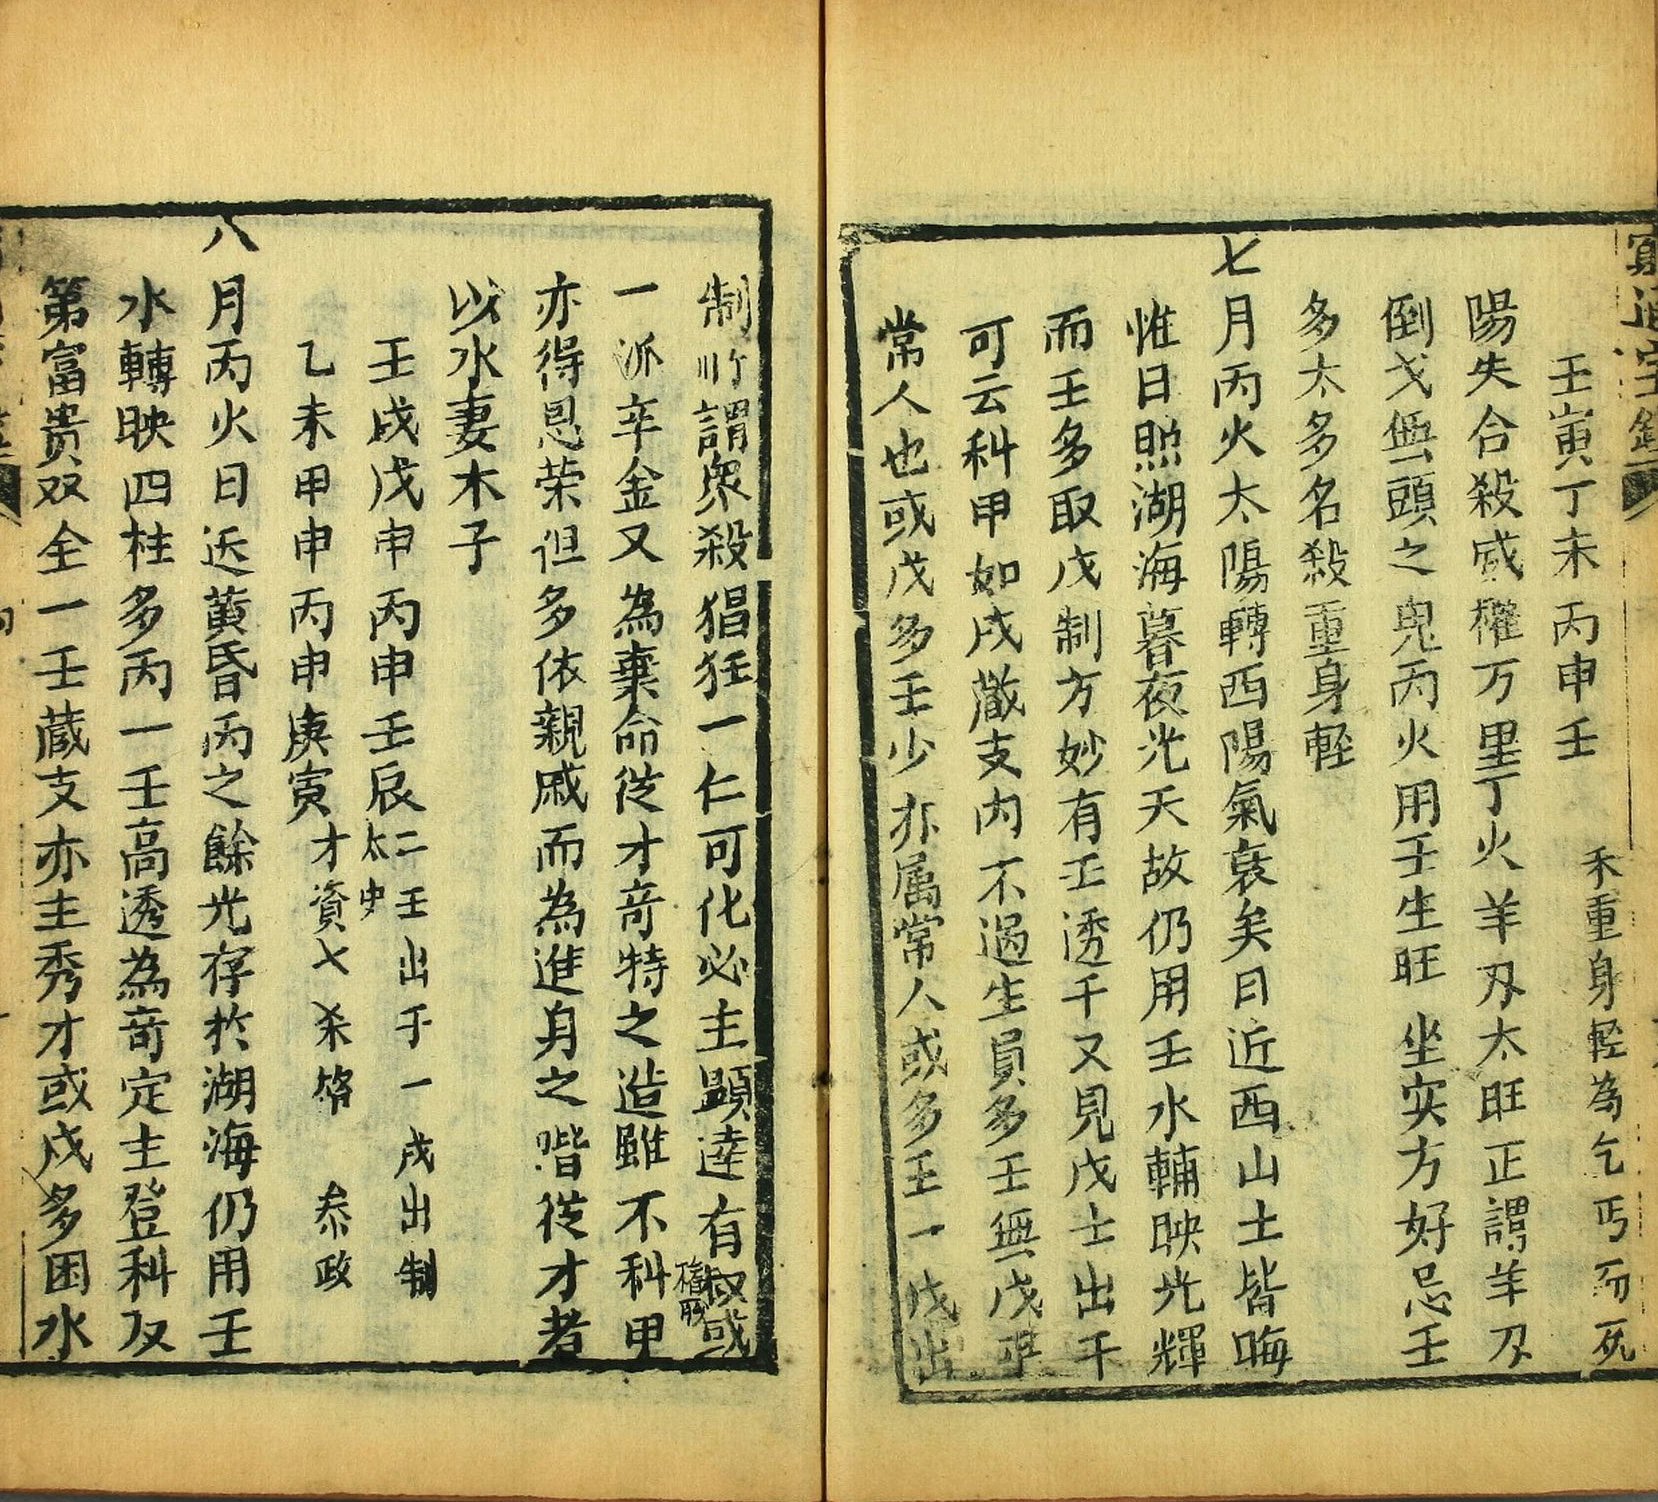 窮通宝鑑
壬寅丁未丙申壬 禾重身輕為乞丐而死
陽失合殺威權万里丁火羊刃太旺正謂羊刃
倒戈無頭之鬼丙火用壬生旺坐实方好忌壬
多太多名殺重身軽
七月丙火太陽轉西陽氣衰矣日近西山土皆晦
惟日照湖海暮夜光天故仍用壬水輔映光輝
而壬多取戊制方妙有壬透干又見戊士出干
可云科甲如戊蔵支内不過生員多壬無戊平
常人也或戊多壬少亦属常人或多壬一戊出
制所謂眾殺猖狂一仁可化必主顕達有叔或
一派辛金又為棄命從才竒特之造雖不科甲
亦得恩荣但多依親戚而為進身之階從才者
以水妻木子
壬戌戊申丙申壬辰二壬出于一戊出制太史
乙未甲申丙申庚寅才資七杀格 叅政
八月丙火日近黄昏丙之餘光存於湖海仍用壬
水轉映四柱多丙一壬高透為奇定主登科及
第富貴双全一壬蔵支亦主秀才或戊多困水